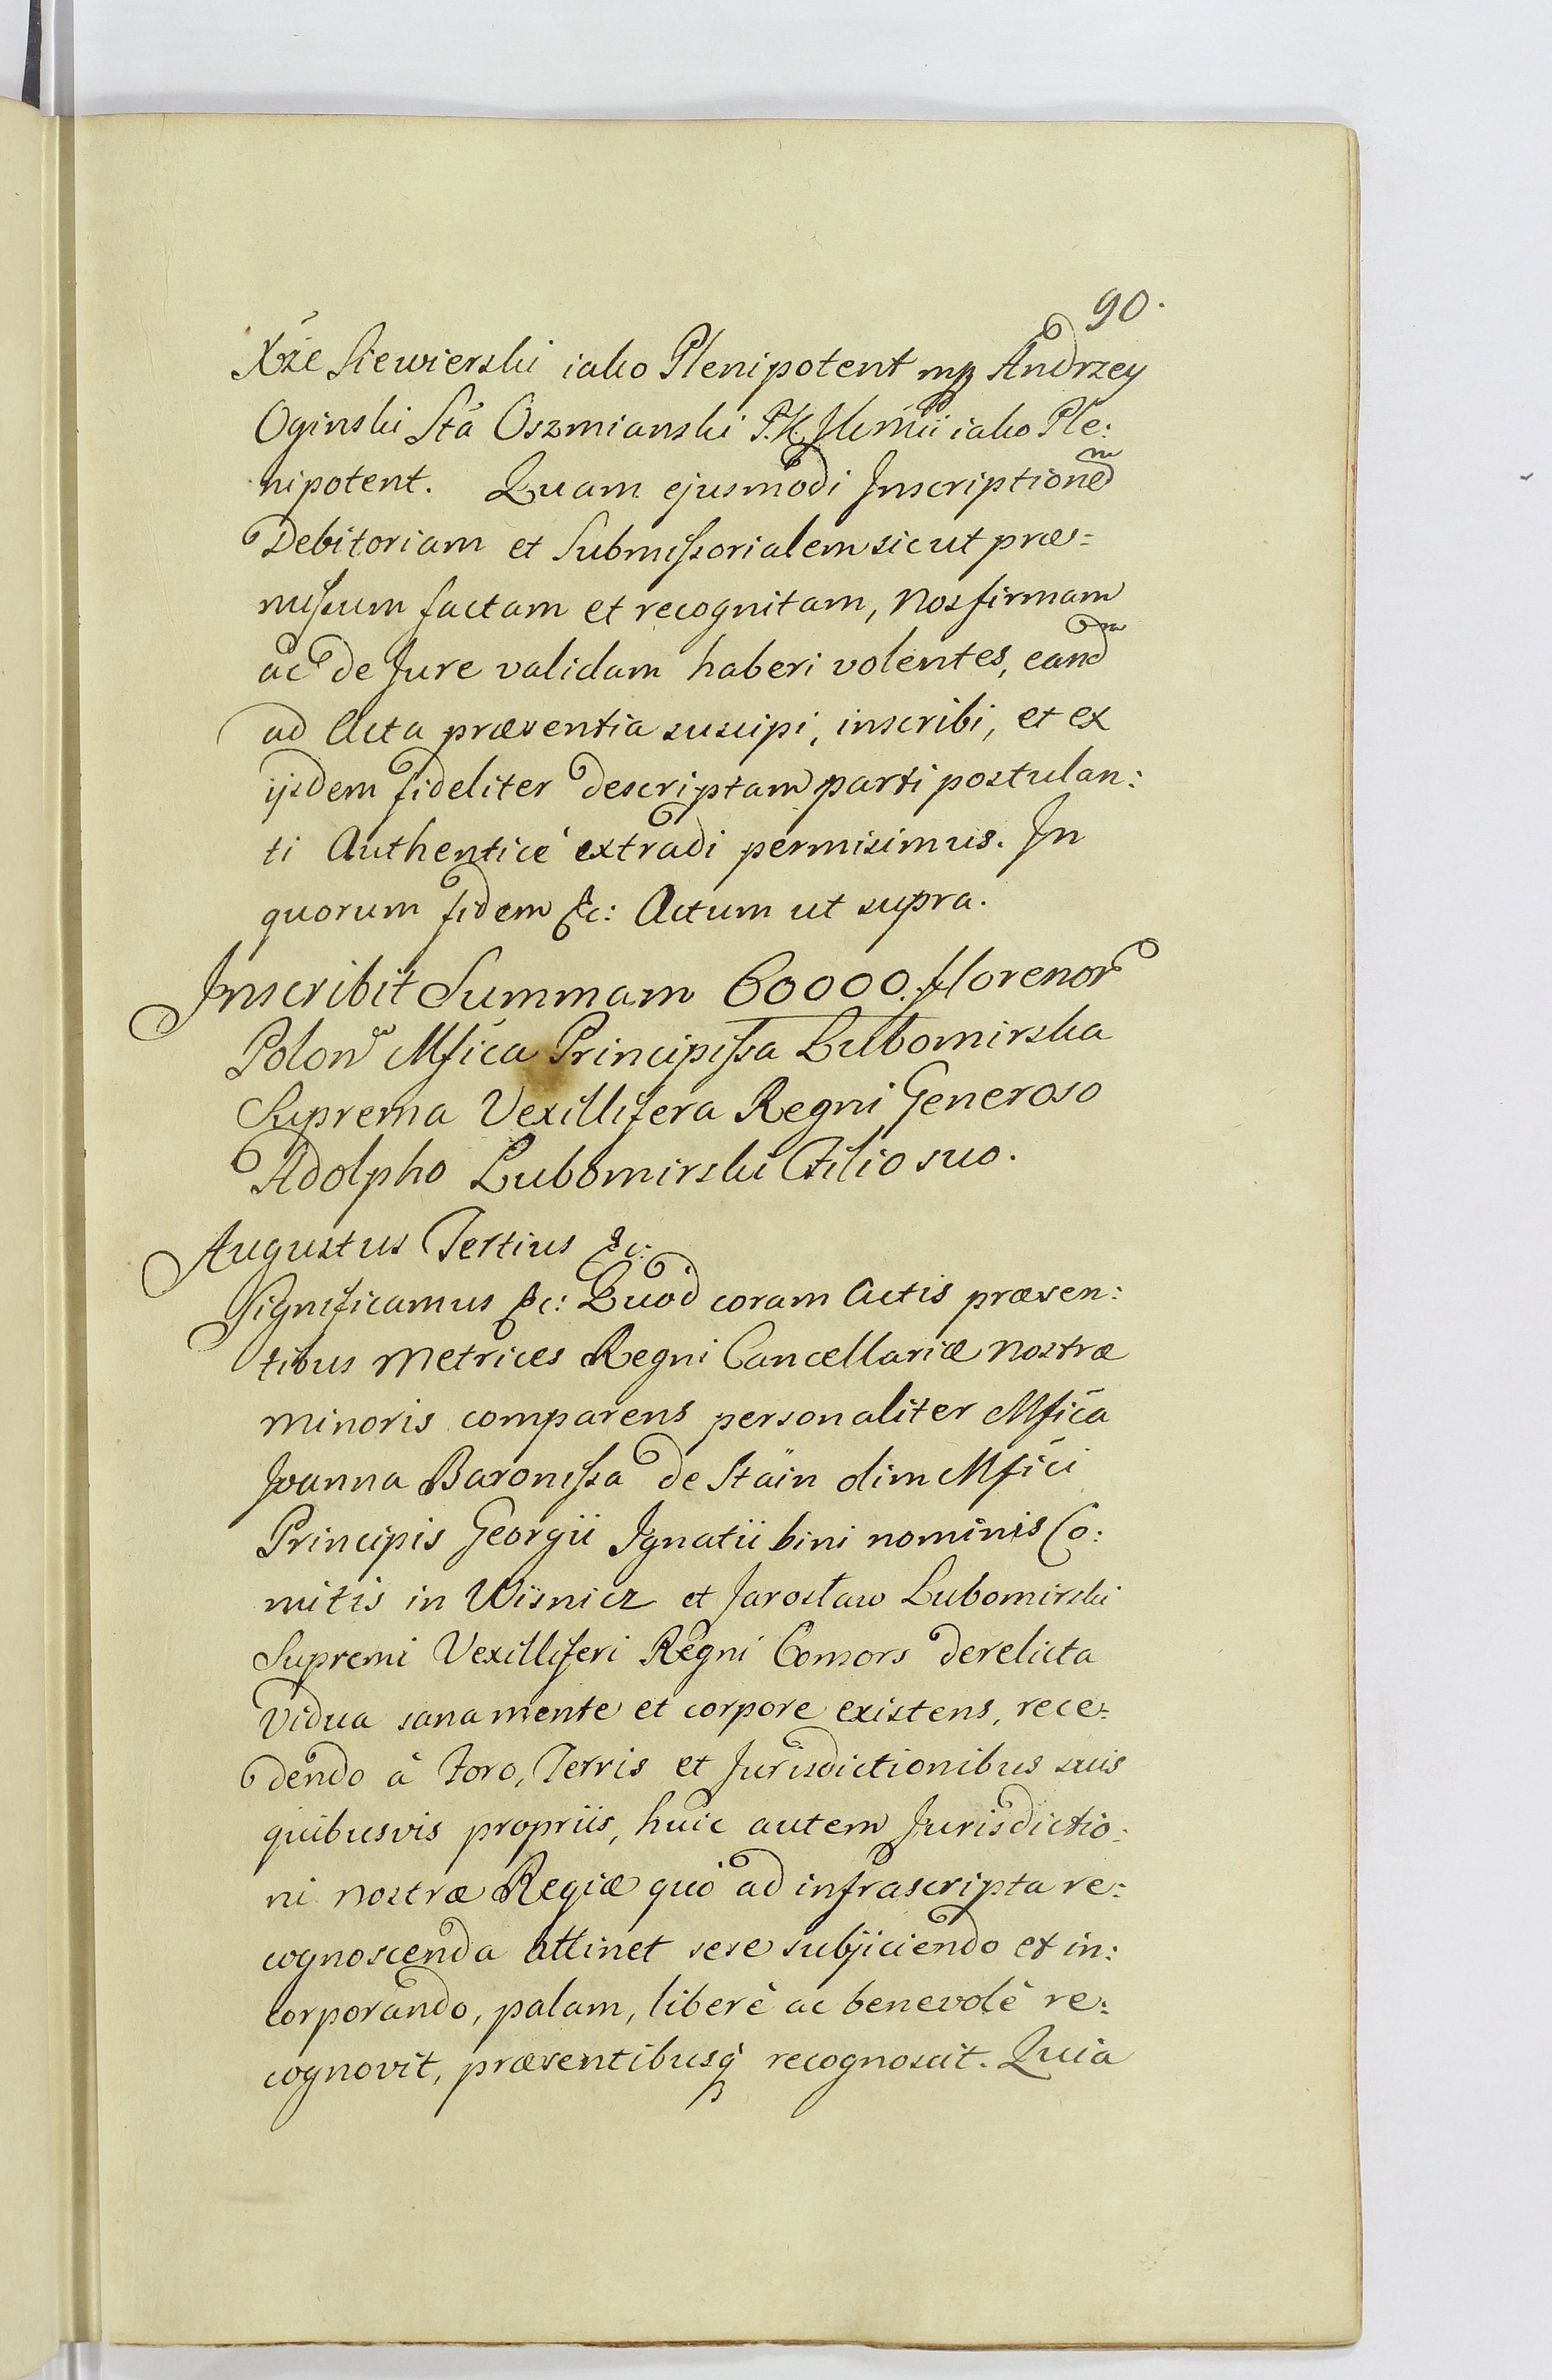 90.
Xże Siewierski iako Plenipotent mp Andrzey
Oginski Sta Oszmianski iako Ple:
nipotent. Quam ejusmodi Inscriptionem
Debitoriam et Submissorialem sicut præ=
missum factam et recognitam, nos firmam
ac de Jure validam haberi volentes, eandm
ad Acta præsentia suscipi, inscribi, et ex
ijsdem fideliter descriptam parti postulan:
ti Authenticè extradi permisimus. In
quorum fidem &c: Actum ut supra.
Inscribit Summam 60000. florenor
Polon Mfica Principissa Lubomirska
Suprema Vexillifera Regni Generoso
Adolpho Lubomirski Filio suo.
Augustus Tertius &c:
Significamus &c: Quod coram Actis præsen:
tibus Metrices Regni Cancellariæ nostræ
minoris comparens personaliter Mfica
Joanna Baronissa de Stäin olim Mfici
Principis Georgii Ignatii bini nominis Co:
mitis in Wisnicz et Jarosław Lubomirski
Supremi Vexilliferi Regni Consors derelicta
Vidua sana mente et corpore existens, rece=
dendo à Foro, Terris et Jurisdictionibus suis
quibusvis propriis, huic autem Jurisdictio:
ni nostræ Regiæ quò ad infrascripta re:
cognoscenda attinet sese subjiciendo et in:
corporando, palam, liberè ac benevolè re:
cognovit, præsentibusq recognoscit. Quia